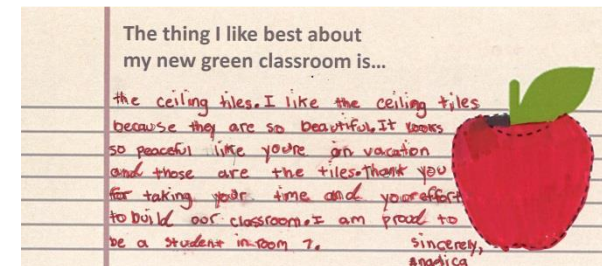 The thing I like best about
my new green classroom is...
the ceiling tiles. I like the ceiling tiles
because they are so beautiful. It looks
so peaceful like you're on vacation
and those are the tiles. Thank you
for taking your time and your effort
to build our classroom. I am proud to
be a student in room 7.
sincerely,